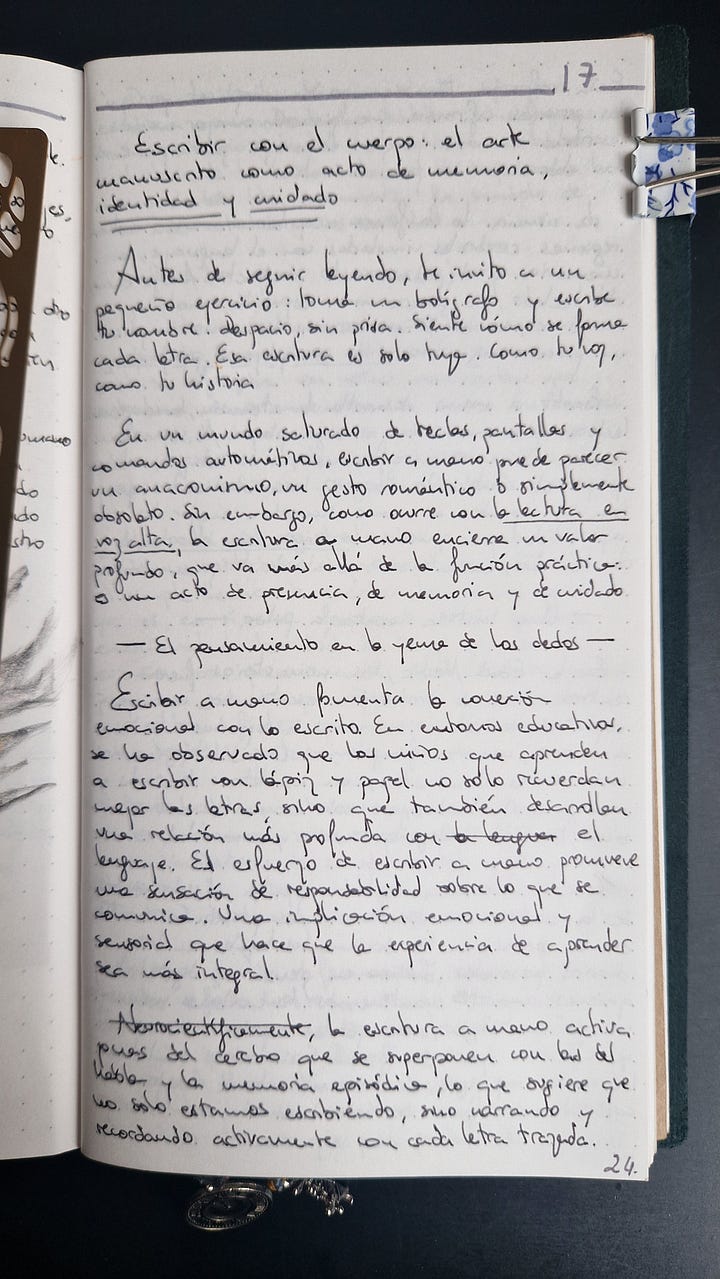 17
Escribir con el cuerpo: el arte
manuscrito como acto de memoria,
identidad y cuidado
Antes de seguir leyendo, te invito a un
pequeño ejercicio: toma un bolígrafo y escribe
tu nombre. despacio, sin prisa. Siente cómo se forma
cada letra. Esa escritura es solo tuya. Como tu voz,
como tu historia
En un mundo saturado de teclas, pantallas y
comandos automáticos, escribir a mano puede parecer
un anacronismo, un gesto romántico o simplemente
obsoleto. Sin embargo, como ocurre con la lectura en
voz alta, la escritura a mano encierra un valor
profundo, que va más allá de la función práctica:
es un acto de presencia, de memoria y de cuidado.
— El pensamiento en la yema de los dedos —
Escribir a mano fomenta la conexión
emocional con lo escrito. En entornos educativos,
se ha observado que los niños que aprenden
a escribir con lápiz y papel no sólo recuerdan
mejor las letras, sino que también desarrollan
una relación más profunda con la lengua el
lenguaje. El esfuerzo de escribir a mano promueve
una sensación de responsabilidad sobre lo que se
comunica. Una implicación emocional y
sensorial que hace que la experiencia de aprender
sea más integral.
Neurocientíficamente, la escritura a mano activa
zonas del cerebro que se superponen con las del
habla y la memoria episódica, lo que sugiere que
no solo estamos escribiendo, sino narrando y
recordando activamente con cada letra trazada.
24.